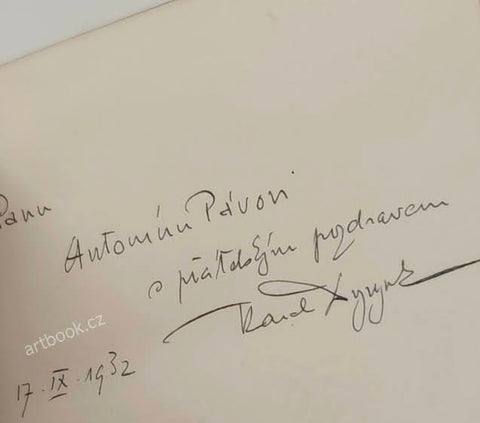 Panu
Antonínu Pávovi
s přátelským pozdravem
Karel
artbook.cz
17. IX. 1932